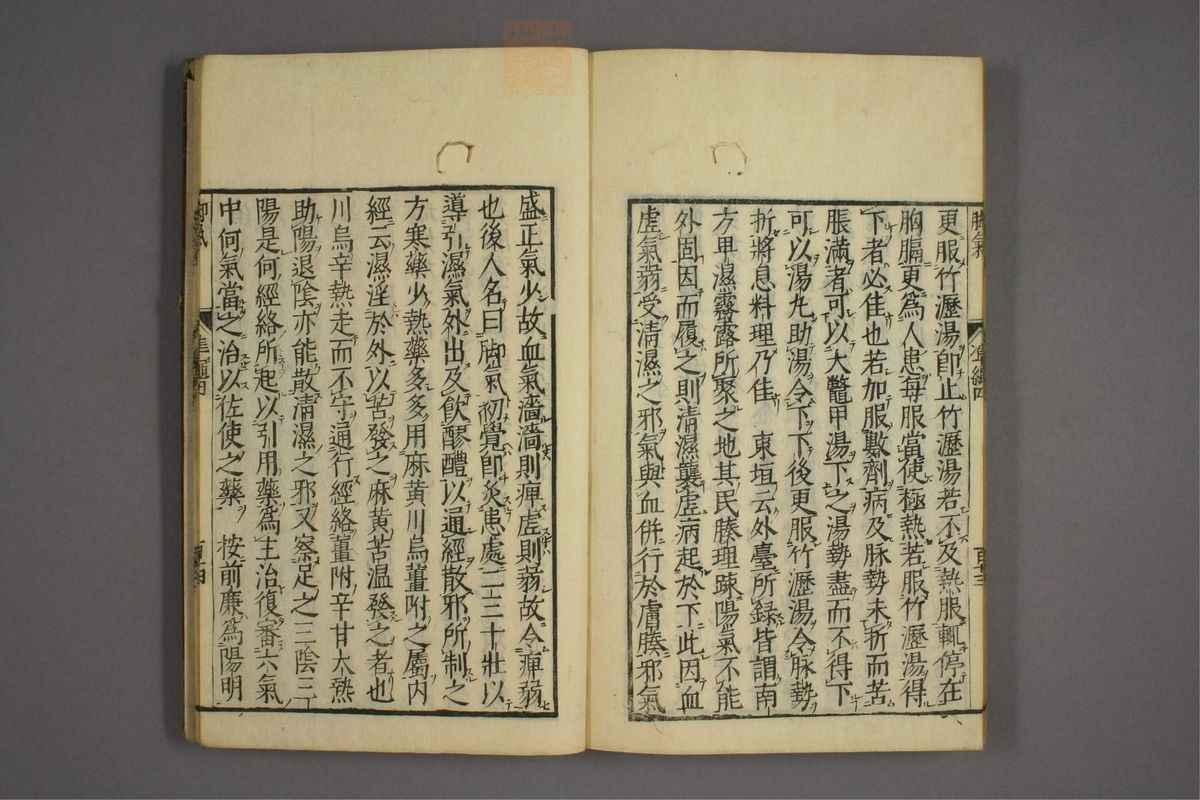 更服竹瀝湯卽止竹瀝湯若不及熱服輒停在
胸膈更爲人患每服當使極熱若服竹瀝湯得
下者必佳也若加服數劑病及脉勢未折而苦
脹滿者可以大鼈甲湯下之湯勢盡而不得下
可以湯丸助湯令下下後更服竹瀝湯令脉勢
折將息料理乃佳　東垣云外臺所録皆謂南
方卑濕霧露所聚之地其民腠理踈陽氣不能
外固因而履之則清濕襲虛病起於下此因血
虛氣弱受清濕之邪氣與血併行於膚腠邪氣
盛正氣少故血氣濇濇則痺虛則弱故令痺弱
也後人名曰脚氣初覺卽灸患處二三十壯以
導引濕氣外出及飮醪醴以通經散邪所制之
方寒藥少熱藥多多用麻黃川烏薑附之屬內
經云濕淫於外以苦發之麻黃苦温發之者也
川烏辛熱走而不守通行經絡薑附辛甘大熱
助陽退陰亦能散清濕之邪又察足之三陰三
陽是何經絡所起以引用藥爲主治復審六氣
中何氣當之治以佐使之藥　按前廉爲陽明